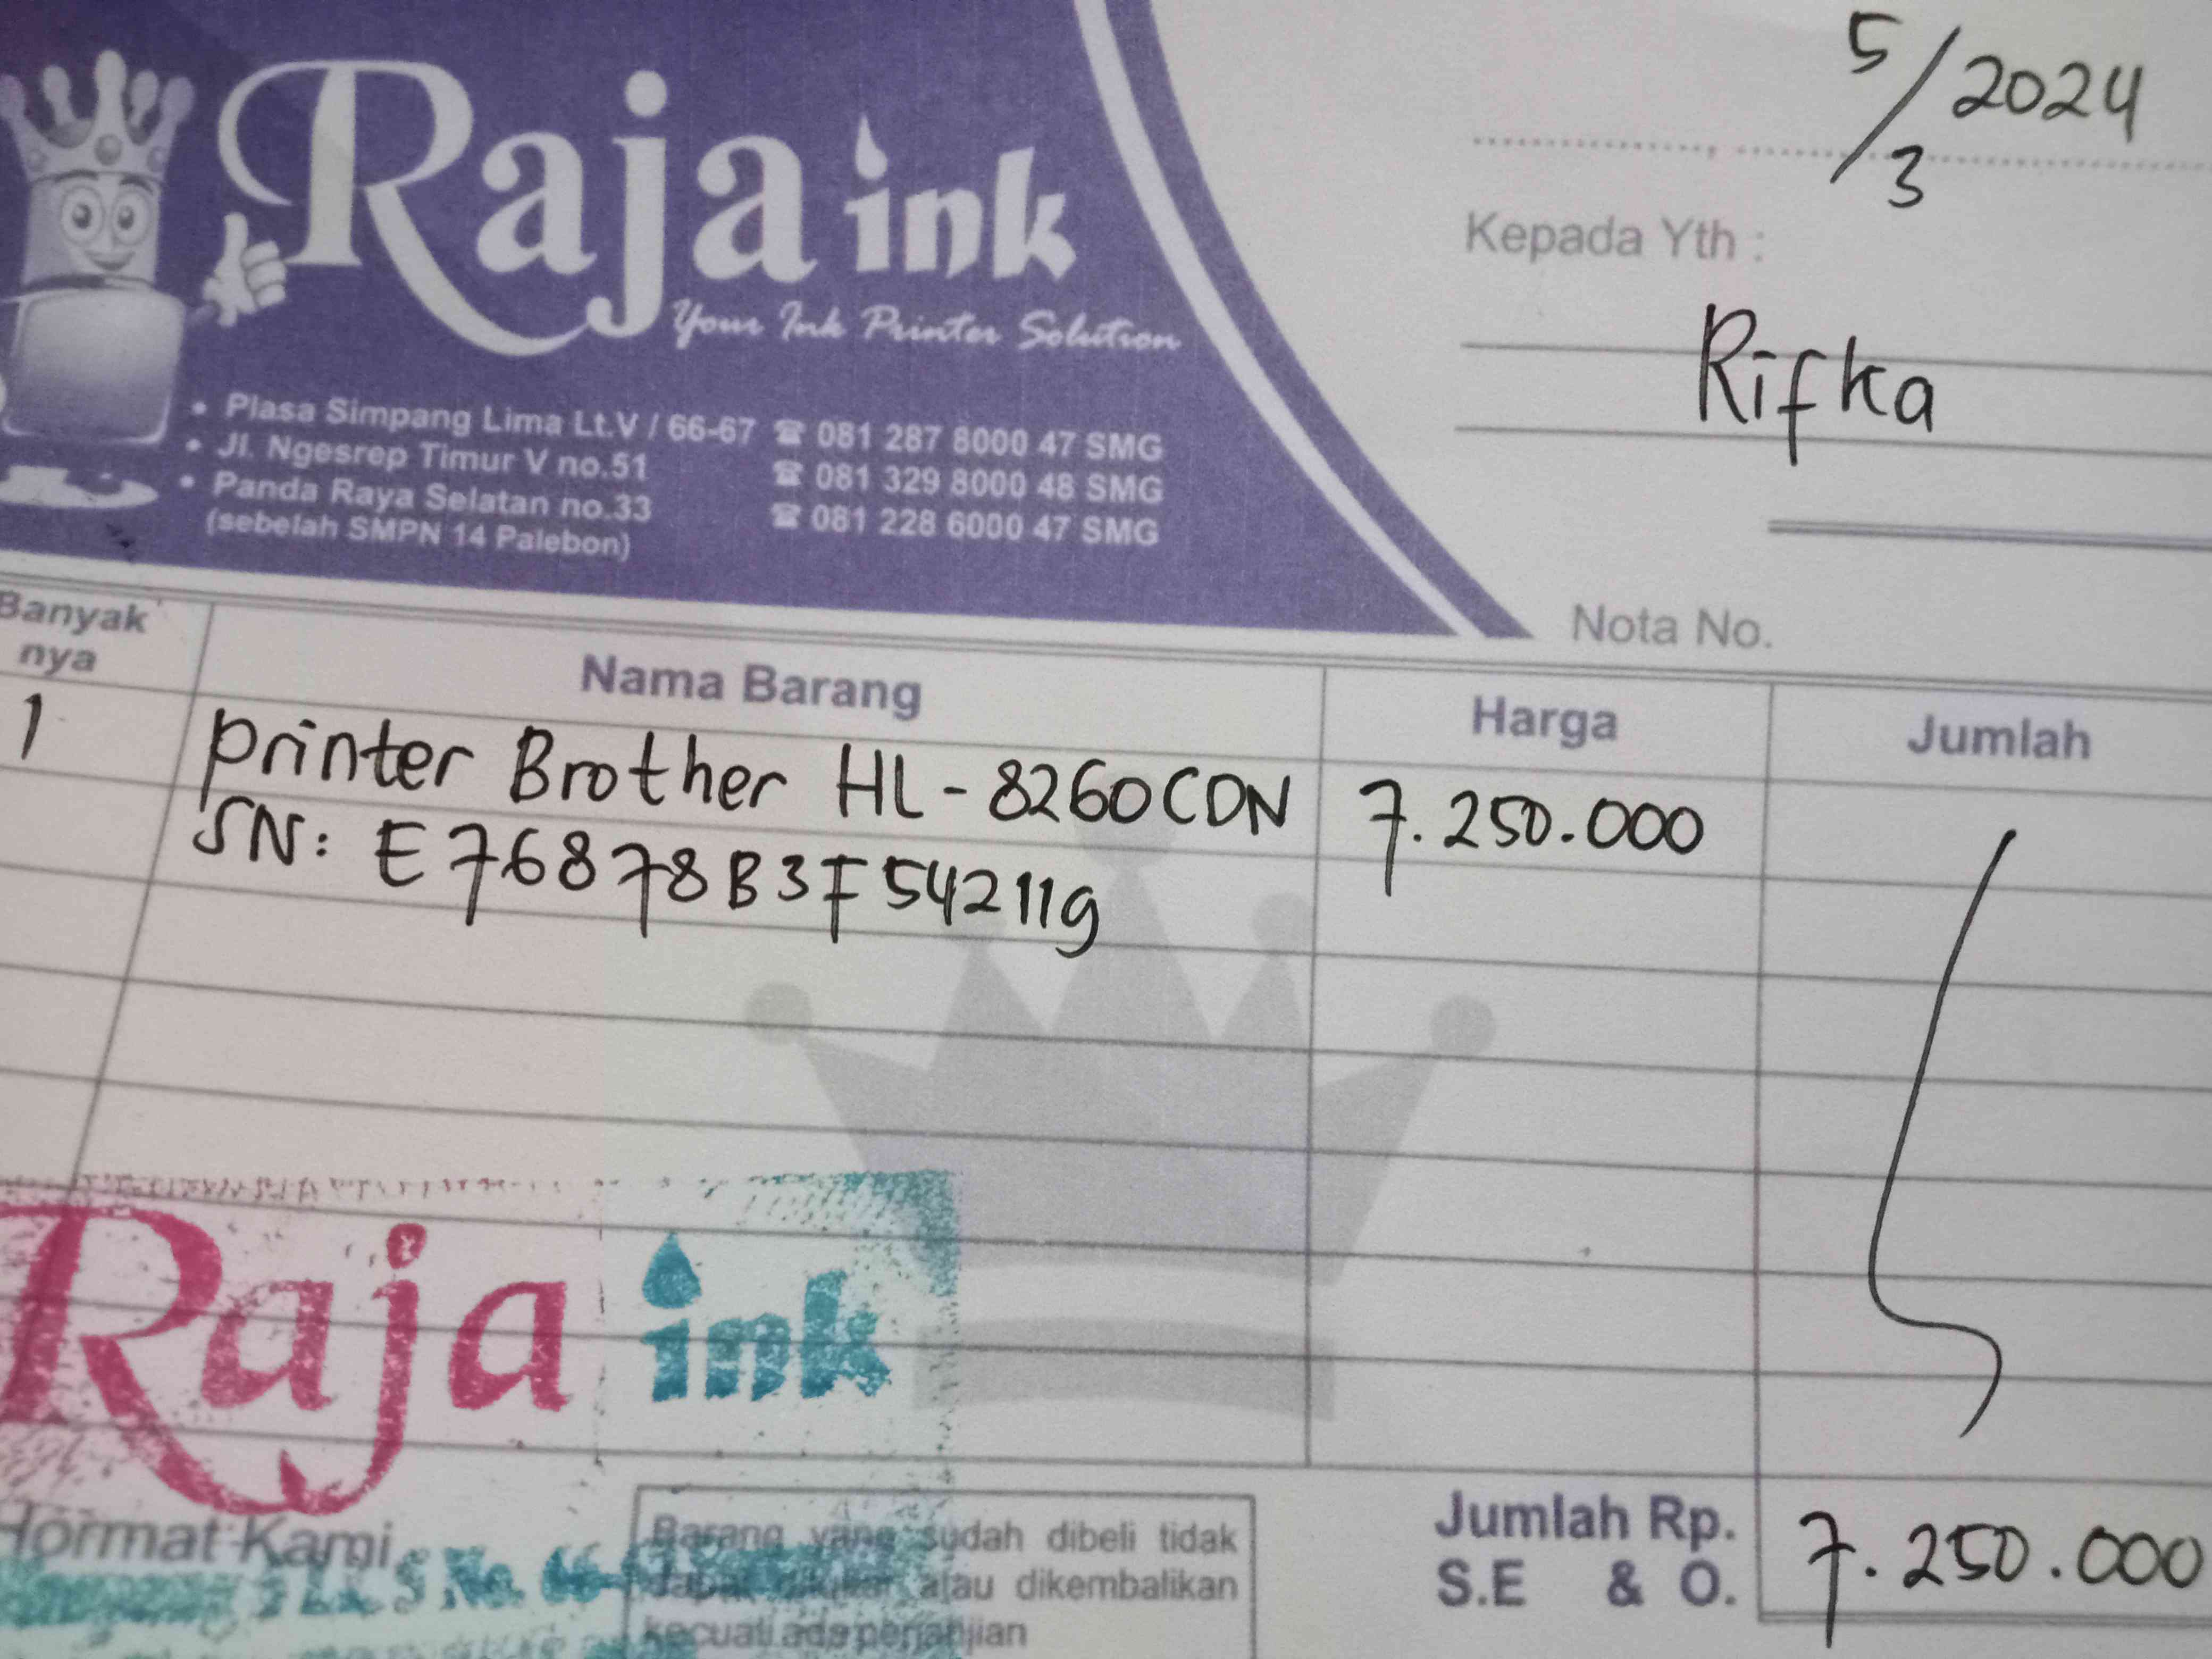 Raja ink
Your Ink Printer Solution
• Plasa Simpang Lima Lt.V / 66-67 ☎ 081 287 8000 47 SMG
• Jl. Ngesrep Timur V no.51 ☎ 081 329 8000 48 SMG
• Panda Raya Selatan no.33 ☎ 081 228 6000 47 SMG
(sebelah SMPN 14 Palebon)
5/3 2024
Kepada Yth :
Rifka
Nota No.
Banyak nya Nama Barang Harga Jumlah
1 printer Brother HL-8260CDN 7.250.000
SN: E76878B3F54211g
Raja ink
Hormat Kami,
No. 66-
Barang yang sudah dibeli tidak
dapat ditukar atau dikembalikan
kecuali ada perjanjian
Jumlah Rp. 7.250.000
S.E & O.